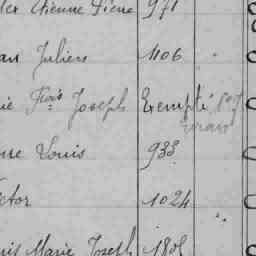 Etienne Pierre 971
Julien 1106
Fois Joseph Exempté
Louis 933
ctor 1024
Marie Joseph 1808